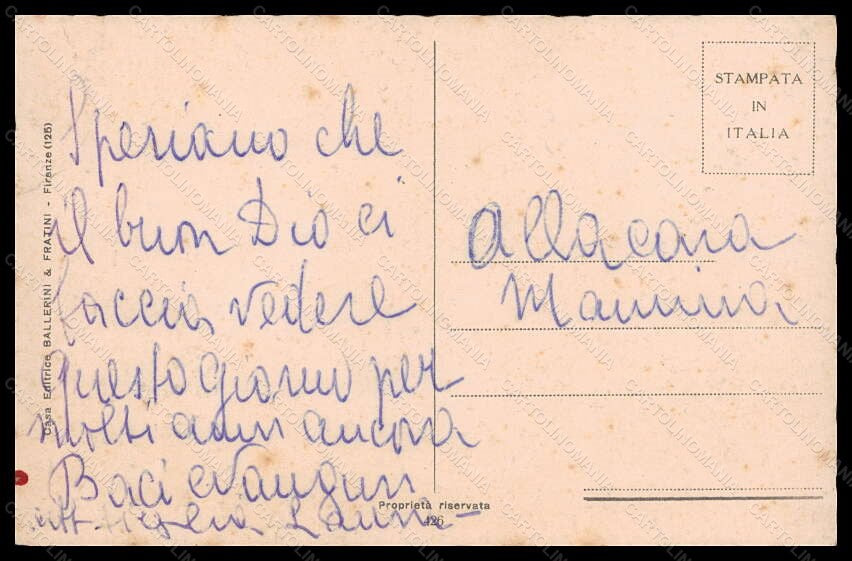 Speriamo che
il buon Dio ci
faccia vedere
questo giorno per
molti anni ancora
Baci e auguri
Alla cara
Mammina
STAMPATA
IN
ITALIA
Casa Editrice BALLERINI & FRATINI - Firenze (125)
Proprietà riservata
426
CARTOLINOMANIA